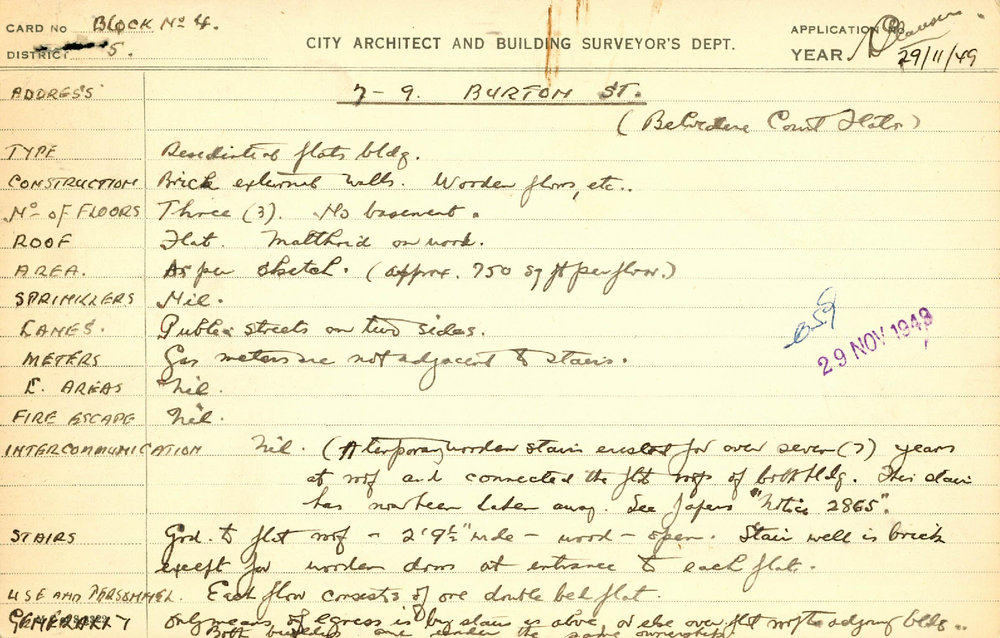 CARD No BLOCK No 4.
DISTRICT 5.
CITY ARCHITECT AND BUILDING SURVEYOR'S DEPT.
APPLICATION No.
YEAR 29/11/49
ADDRESS 7-9. BURTON ST.
(Belvedere Court Flats)
TYPE Residential flats bldg.
CONSTRUCTION Brick external walls. Wooden floors, etc..
No. of FLOORS Three (3). No basement.
ROOF Flat. Malthoid on wood.
AREA. As per sketch. (approx. 750 sq ft per floor.)
SPRINKLERS Nil.
LANES. Public streets on two sides.
29 NOV 1949
METERS Gas meters are not adjacent to stairs.
L. AREAS Nil.
FIRE ESCAPE Nil.
INTERCOMMUNICATION Nil. (A temporary wooden stairs existed for over seven (7) years
at roof and connected the flat roofs of both bldg. This stair
has now been taken away. See Papers "Notice 2865".
STAIRS Grd. to flat roof - 2'9½" wide - wood - open. Stair well is brick
except for wooden doors at entrance to each flat.
USE AND PERSONNEL. Each floor consists of one double bed flat.
GENERALLY only means of egress is by stair as above, or else over flat roof to adjoing bldg.
Both buildgs are under the same ownership